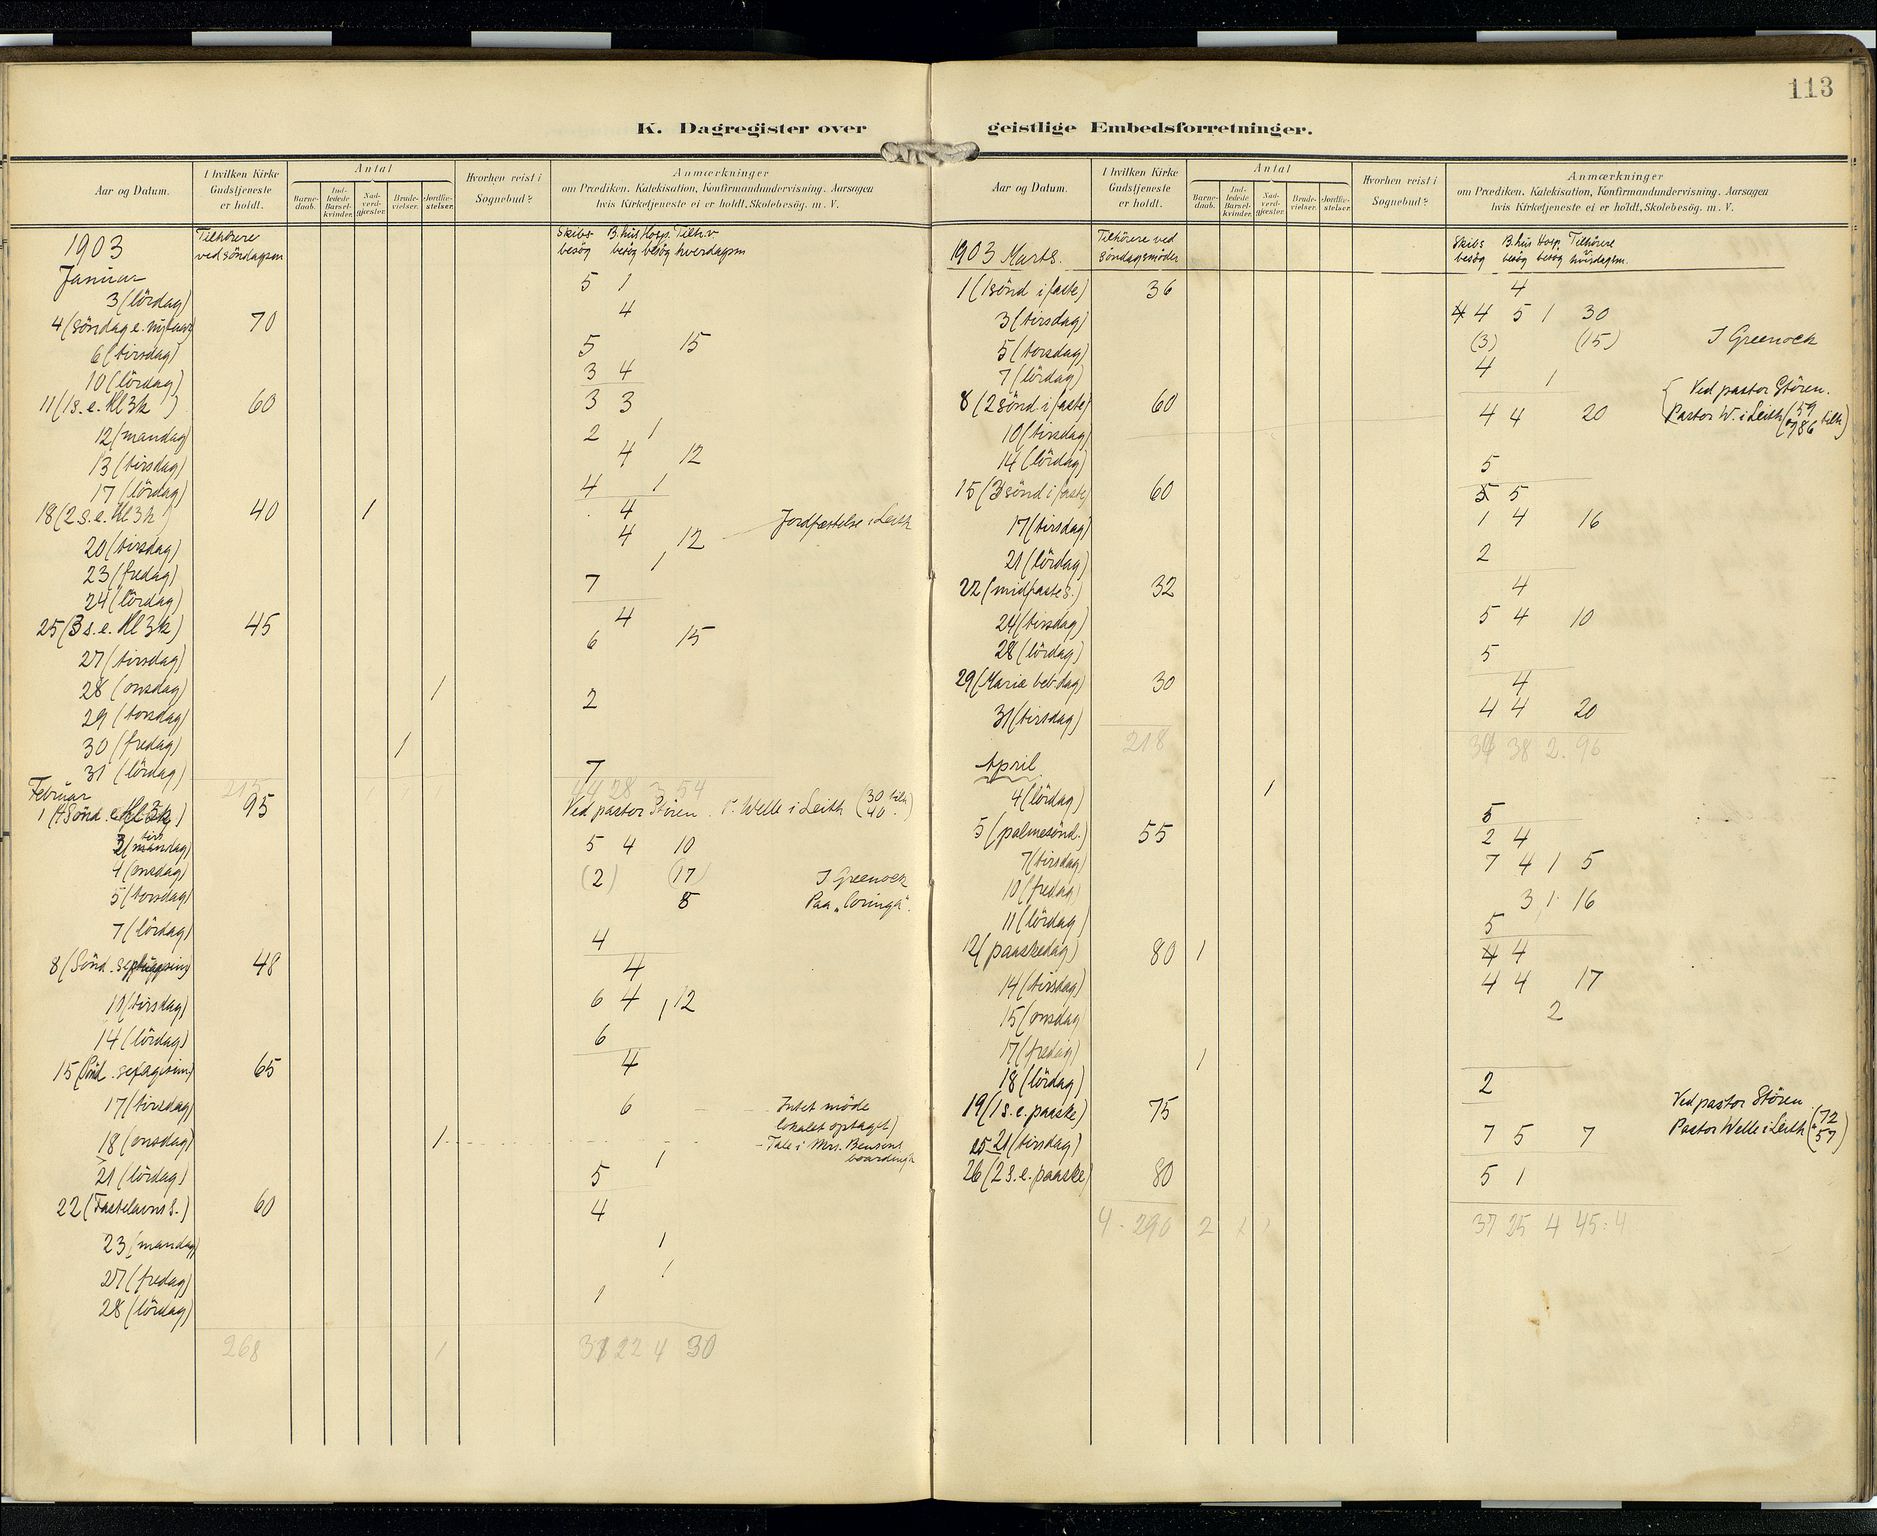 113
K. Dagregister over geistlige Embedsforretninger.
Aar og Datum. | I hvilken Kirke Gudstjeneste er holdt. | Antal | Barne-daab. | Ind-ledede Barsel-kvinder. | Nad-verd-gjester. | Brude-vielser. | Jordfæ-stelser. | Hvorhen reist i Sognebud? | Anmærkninger om Prædiken, Katekisation, Konfirmandundervisning, Aarsagen hvis Kirketjeneste ei er holdt, Skolebesög. m. V.
1903 Tilhörere ved söndagsm Skibs-besög B.hus besög Hosp. besög Tilh. v hverdagsm
Januar
3 (lördag) 5 1
4 (söndag e. nytaar) 70 4
6 (tirsdag) 5 15
10 (lördag) 3 4
11 (1 s. e. Hl 3k) 60 3 3
12 (mandag) 2 1
13 (tirsdag) 4 12
17 (lördag) 4 1
18 (2 s. e. Hl 3k) 40 1 4
20 (tirsdag) 4 12 Jordfæstelse i Leith
23 (fredag) 1
24 (lördag) 7
25 (3 s. e. Hl 3k) 45 4
27 (tirsdag) 6 15
28 (onsdag) 1
29 (torsdag) 2
30 (fredag) 1
31 (lördag) 7
215 1 1 1 44 28 3 54
Februar
1 (4 Sönd. e Hl 3k) 95 Ved pastor Stören. P. Welle i Leith (30 40 tilh.)
3 (tirsdag) 5 4 10
4 (onsdag) (2) (17) I Greenock
5 (torsdag) 8 Paa "Coringa".
7 (lördag) 4
8 (Sönd. septuagesima) 48 4
10 (tirsdag) 6 4 1 12
14 (lördag) 6
15 (Sönd. sexagesima) 65 4
17 (tirsdag) 6 - - Intet möde
lokalet optaget)
18 (onsdag) 1 - Tale i Mrs. Bensons boardingh
21 (lördag) 5 1
22 (Fastelavns s.) 60 4
23 (mandag) 1
27 (fredag) 1
28 (lördag) 1
268 1 31 22 4 30
Aar og Datum. | I hvilken Kirke Gudstjeneste er holdt. | Antal | Barne-daab. | Ind-ledede Barsel-kvinder. | Nad-verd-gjester. | Brude-vielser. | Jordfæ-stelser. | Hvorhen reist i Sognebud? | Anmærkninger om Prædiken, Katekisation, Konfirmandundervisning, Aarsagen hvis Kirketjeneste ei er holdt, Skolebesög. m. V.
1903 Marts. Tilhörere ved söndagsmöder Skibs besög B.hus besög Hosp. besög Tilhörere v hverdagsm.
1 (1 sönd i faste) 36 4
3 (tirsdag) 4 4 5 1 30
5 (torsdag) (3) (15) I Greenock
7 (lördag) 4 1
8 (2 sönd i faste) 60 Ved pastor Stören.
Pastor W. i Leith (59 86 tilh)
10 (tirsdag) 4 4 20
14 (lördag) 5
15 (3 sönd i faste) 60 5 5
17 (tirsdag) 1 4 16
21 (lördag) 2
22 (midfaste s.) 32 4
24 (tirsdag) 5 4 10
28 (lördag) 5
29 (Mariæ beb. dag) 30 4
31 (tirsdag) 4 4 20
218 34 38 2. 96
April
4 (lördag) 1 5
5 (palmesönd.) 55 2 4
7 (tirsdag) 7 4 1 5
10 (fredag) 3 1 16
11 (lördag) 5
12 (paaskedag) 80 1 4 4
14 (tirsdag) 4 4 17
15 (onsdag 2
17 (fredag) 1
18 (lördag) 2
19 (1 s. e. paaske) 75 Ved pastor Stören
Pastor Welle i Leith (72 57)
21 (tirsdag) 7 5 7
25
26 (2 s. e. paaske) 80 5 1
4 - 290 2 37 25 4 45: 4